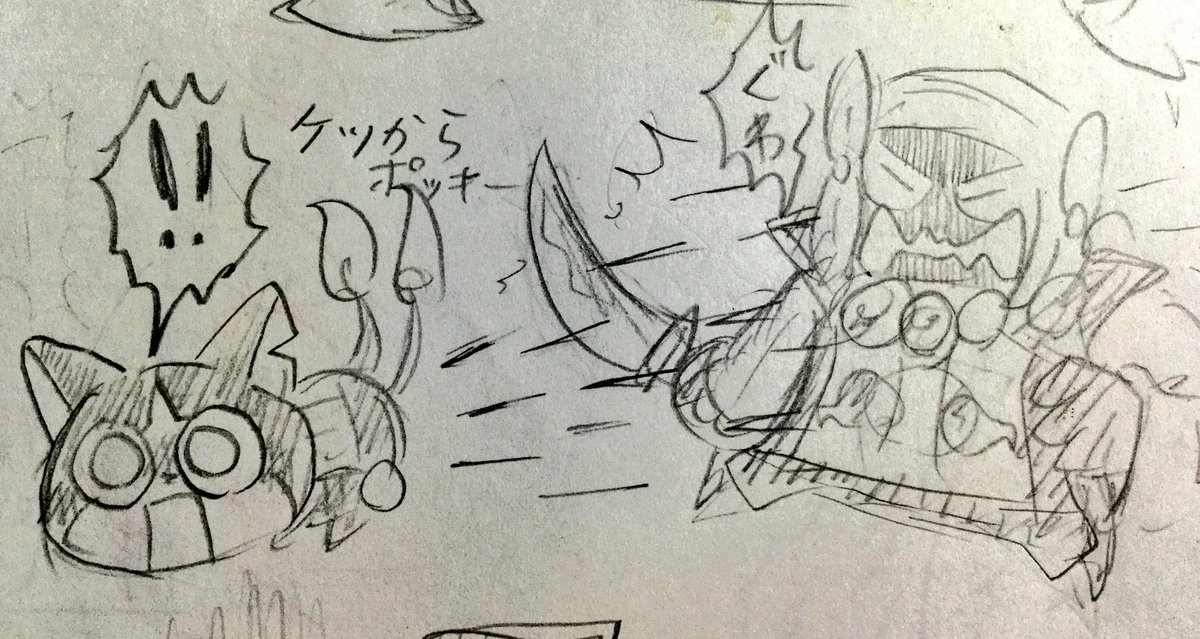 !!
ケツから
ポッキー
ぐわ